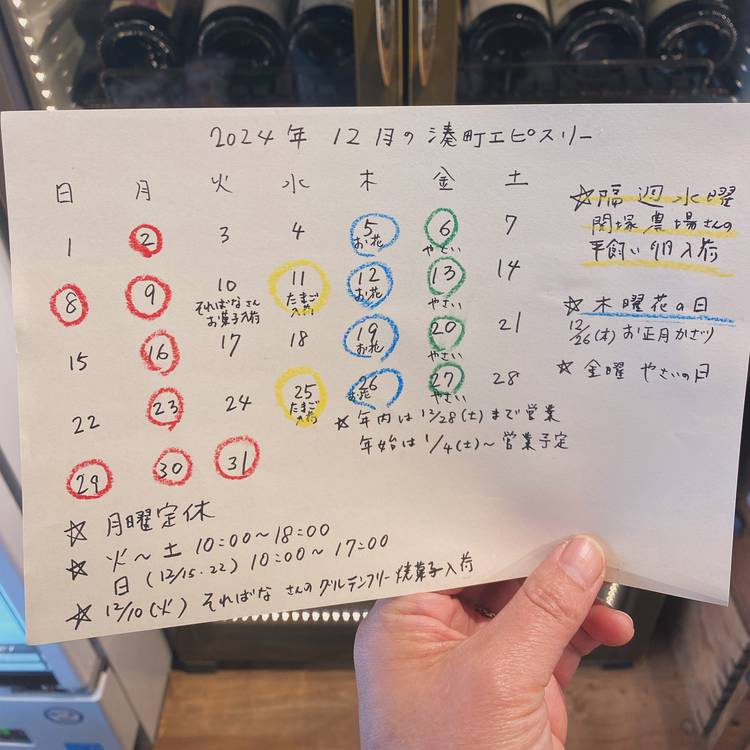 2024年 12月の湊町エピスリー
日 月 火 水 木 金 土
1 2 3 4 5 6 7
お花 やさい
8 9 10 11 12 13 14
そればなさん たまご お花 やさい
お菓子入荷 入荷
15 16 17 18 19 20 21
お花 やさい
22 23 24 25 26 27 28
たまご お花 やさい
入荷
29 30 31
☆隔週水曜
関塚農場さんの
平飼い卵入荷
☆木曜花の日
12/26(木)お正月かざり
☆金曜 やさいの日
☆年内は12/28(土)まで営業
年始は1/4(土)~営業予定
☆月曜定休
☆火~土 10:00~18:00
日(12/15.22) 10:00~17:00
☆12/10(火) そればな さんの グルテンフリー 焼菓子入荷